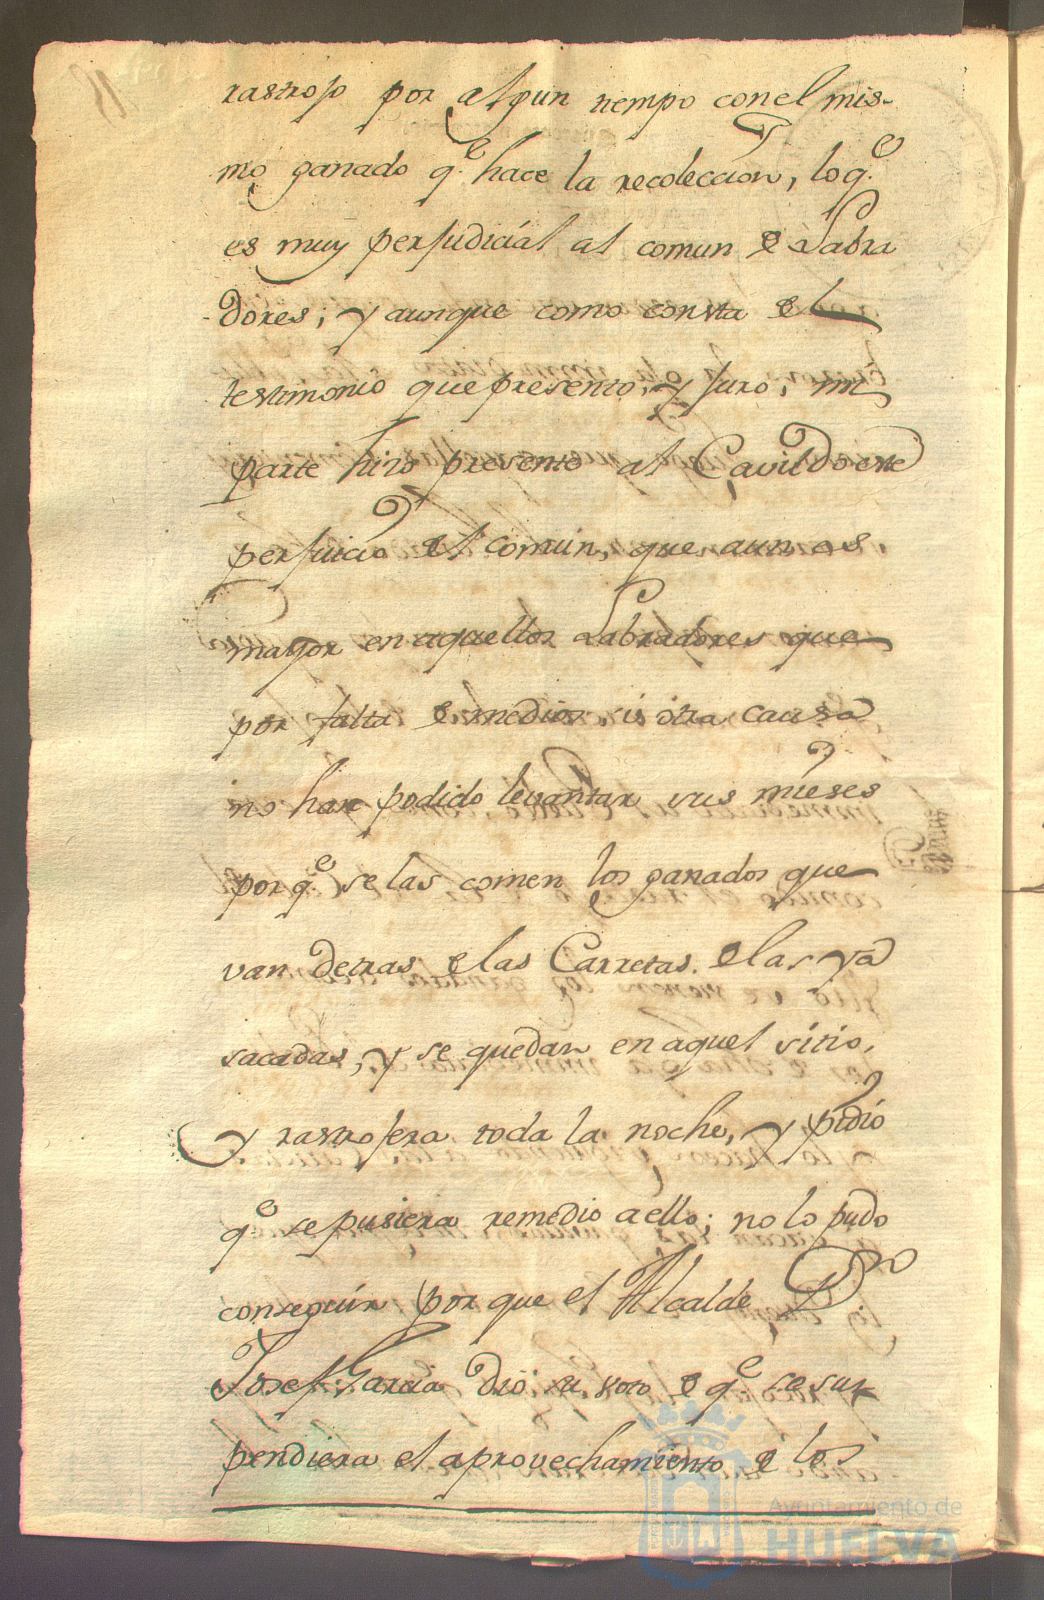 rastrojo por algun tiempo con el mis-
mo ganado q.e hace la recoleccion, lo q.e
es muy perjudicial al comun de Labra
dores; y aunque como consta del
testimonio que presento, y juro, mi
parte hizo presente al Cavildo este
perjuicio del comun, que aun es
mayor en aquellos Labradores que
por falta de medios, ú otra causa
no han podido levantar sus mieses
por q.e se las comen los ganados que
van detras de las Carretas de las ya
sacadas, y se quedan en aquel sitio,
y rastrojera toda la noche, y pidió
q.e se pusiera remedio a ello; no lo pudo
conseguir por que el Alcalde D.n
Josef Garcia dió su voto de q.e se sus
pendiera el aprovechamiento de los
Ayuntamiento de
HUELVA